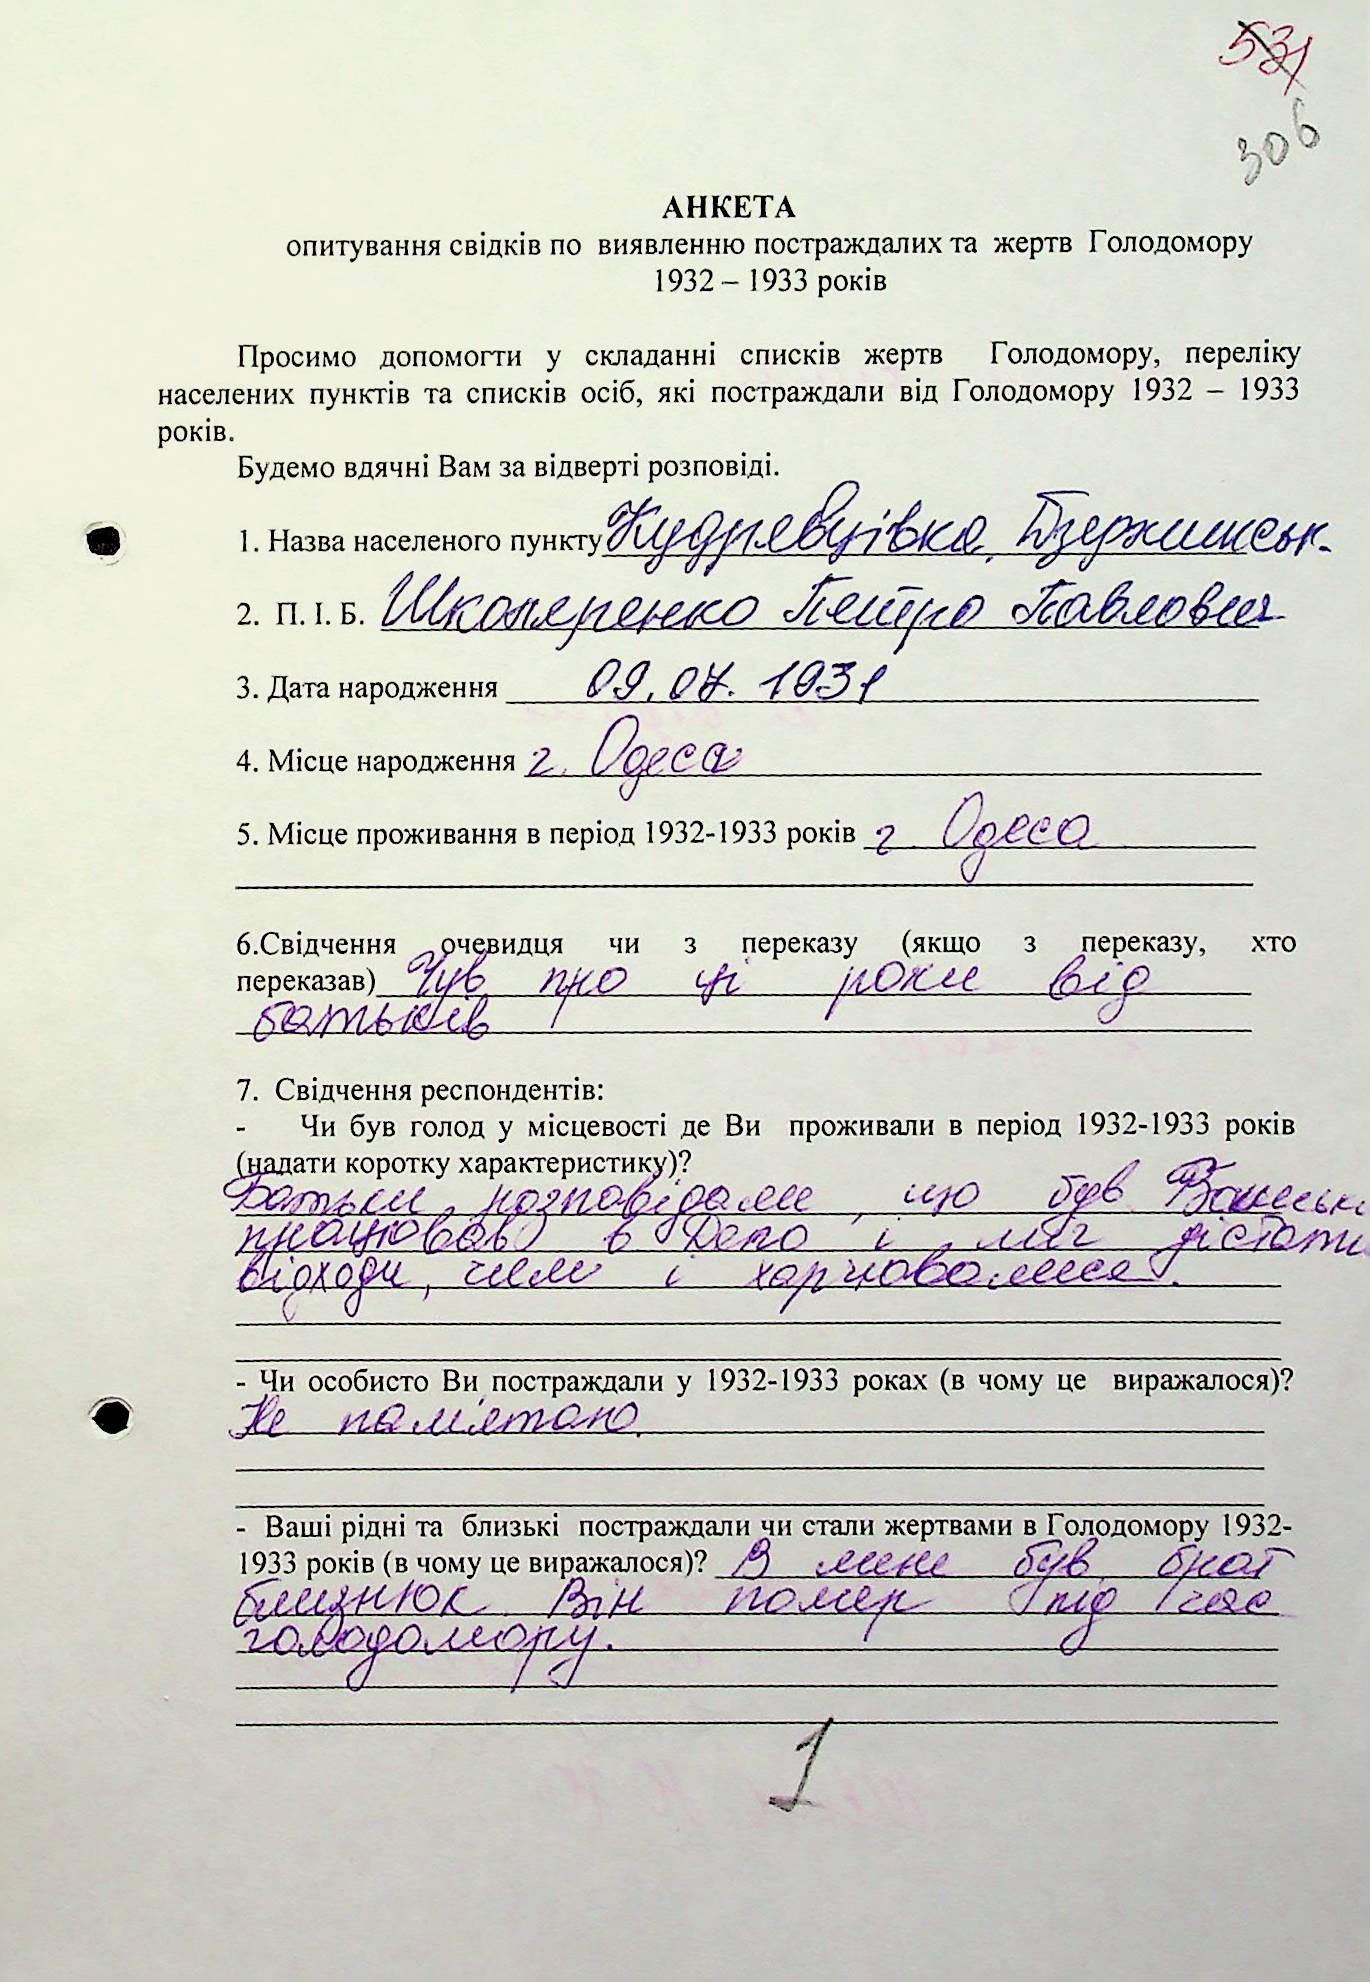 531
306
АНКЕТА
опитування свідків по виявленню постраждалих та жертв Голодомору
1932 – 1933 років
Просимо допомогти у складанні списків жертв Голодомору, переліку
населених пунктів та списків осіб, які постраждали від Голодомору 1932 – 1933
років.
Будемо вдячні Вам за відверті розповіді.
1. Назва населеного пункту Кудрявцівка, Дзержинськ.
2. П. І. Б. Школяренко Петро Павлович
3. Дата народження 09.07.1931
4. Місце народження г. Одеса
5. Місце проживання в період 1932-1933 років г Одеса
6.Свідчення очевидця чи з переказу (якщо з переказу, хто
переказав) Чув про ці роки від
батьків
7. Свідчення респондентів:
- Чи був голод у місцевості де Ви проживали в період 1932-1933 років
(надати коротку характеристику)?
Батьки розповідали, що був. Батько
працював в Депо і міг дістати
відходи, чим і харчувалися.
- Чи особисто Ви постраждали у 1932-1933 роках (в чому це виражалося)?
Не пам'ятаю.
- Ваші рідні та близькі постраждали чи стали жертвами в Голодомору 1932-
1933 років (в чому це виражалося)? В мене був брат
близнюк. Він помер під час
голодомору.
1